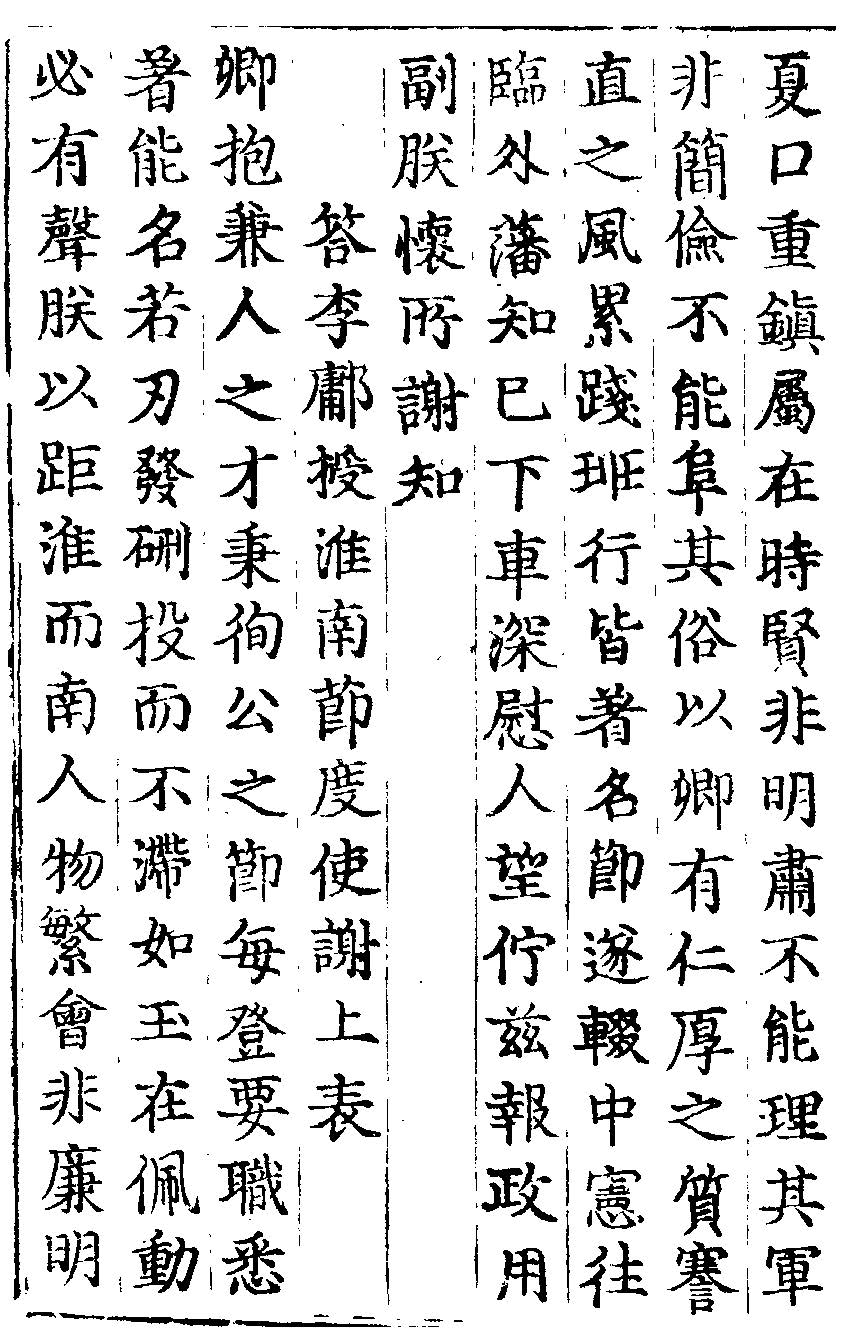 夏口重鎮屬在時賢非明肅不能理其軍
非簡儉不能阜其俗以卿有仁厚之質謇
直之風累踐班行皆著名節遂輟中憲往
臨外藩知已下車深慰人望佇兹報政用
副朕懷所謝知
答李鄘授淮南節度使謝上表
卿抱兼人之才秉徇公之節每登要職悉
著能名若刃發硎投而不滯如玉在佩動
必有聲朕以距淮而南人物繁會非廉明